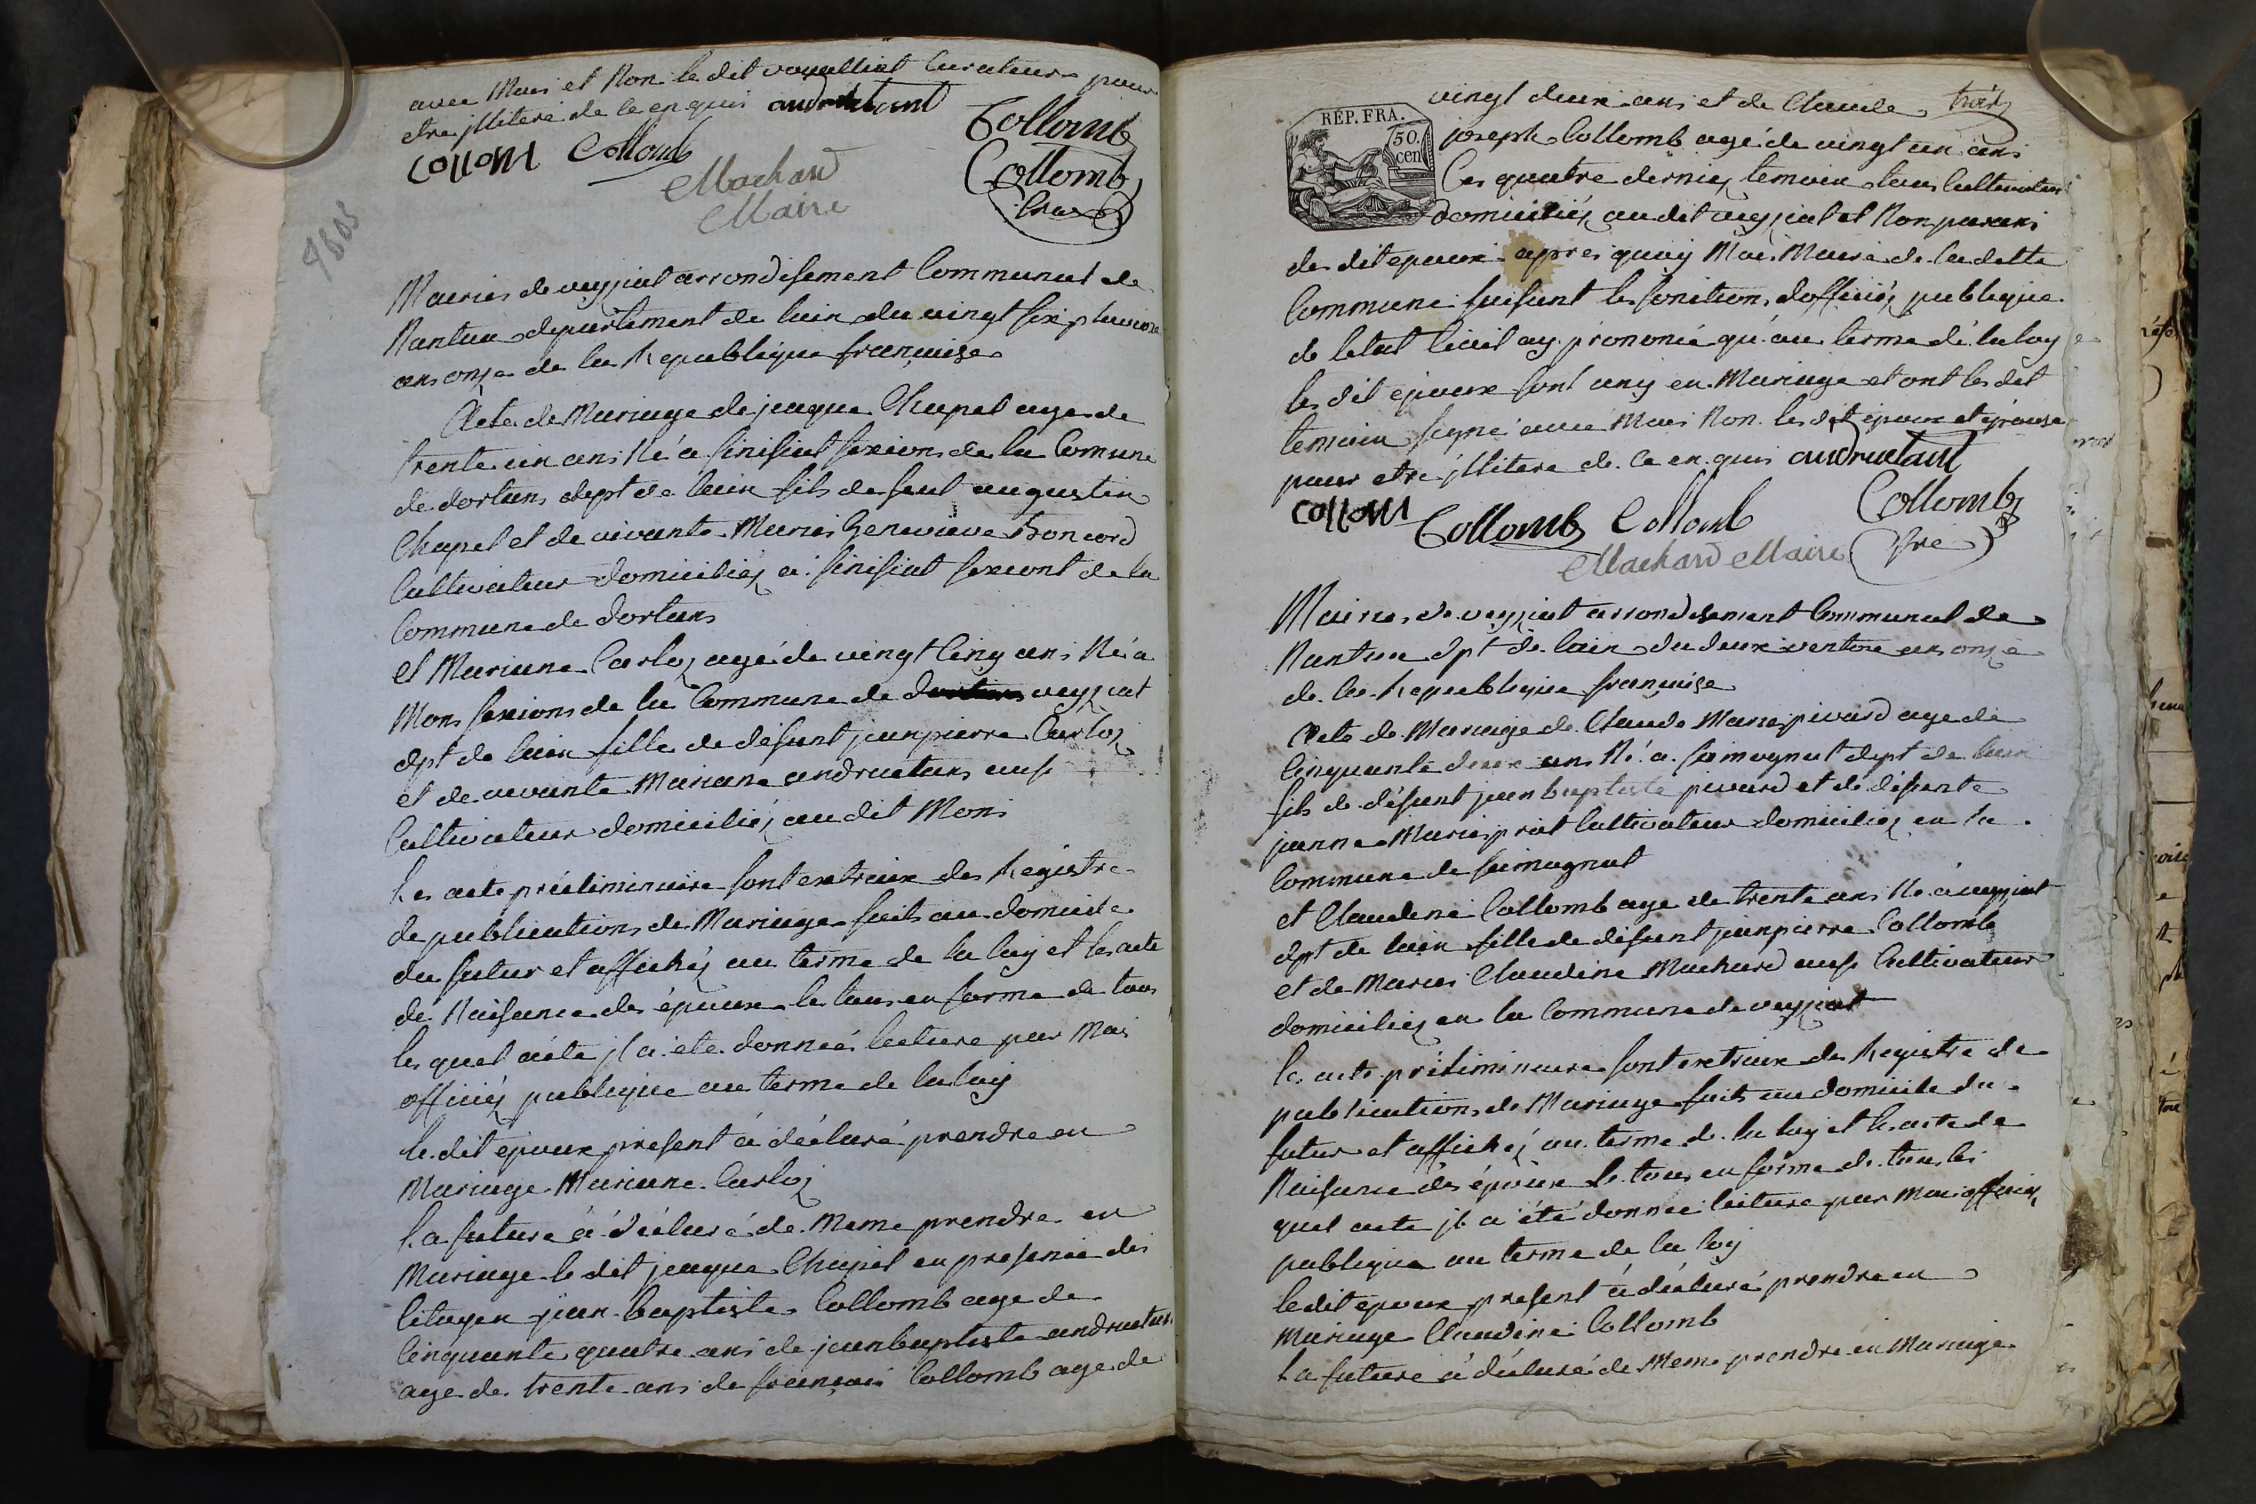 avec Moi et Non le dit vouillat Curateur pour
etre jllitere de ce enquis andruetant
COLLOM Collomb Collomb
Machard Collomb
Maire
1803
Mairies de veyziat arrondisement Communal de
Nantua departement de lain du vingt six pluviose
ans onze de la Republique française
Acte de Mariage de jaque Chapel age de
trente un ans Né a sinisiat sexions de la Comune
de dortans dept de lain fils de feut augustin
Chapel et de vivante Maries Genevieve
Cultivateur domiciliéz a sinisiat sexiont de la
Commune de dortans
et Mariane Carloz agé de vingt Cinq ans Né a
Mons sexions de la Commune de veyziat
dpt de lain fille de défunt jeanpierre Carloz
et de vivante Mariane andruetans ausi
Cultivateur domiciliéz au dit Mons
Les acte préliminaire sont extraix des Registre
de publications de Mariage faits au domicile
du futur et affichéz au terme de la loy et les acte
de Naisance des époux le tous en forme de tous
les quel acte jl a été donnée lecture par Moi
officiéz publique au terme de la loy
le dit époux présent à déclaré prendre en
Mariage Mariane Carloz
La future à déclaré de Meme prendre en
Mariage le dit jaque Chapel en presence des
Citoyen jean baptiste Collomb age de
Cinquante quatre ans de jeanbaptiste andruetans
age de trente ans de françois Collomb age de
vingt deux ans et de Claude
RÉP. FRA.
50.
cen
joseph Collomb agé de vingt un ans
Ces quatre dernier temoin tous Cultivateur
domiciliéz au dit veyziat et Non parans
des dit epoux appres quoy Moi Maire de la ditte
Commune faisant les fonction dofficiéz publique
de letat Civil ay prononcé qu'au terme de la loy
les dit époux sont uny en Mariage et ont les dit
temoin signé avec Moi Non les dit époux et épouse
pour etre jllitere de ce en quis andruetant
COLLOM Collomb Collomb Collomb
Machard Maire
Mairies de veyziat arrondisement Communal de
Nantua dpt de lain du deux ventose ans onze
de la Republique française
Acte de Mariage de Claude Marie pivard age de
Cinquante deux ans Né a samognat dept de lain
fils de défunt jeanbaptiste pivard et de défunte
janne Marie prost Cultivateur domiciliéz en la
Commune de samognat
et Claudine Collomb age de trente ans Né à veyziat
dpt de lain fille de défunt jeanpierre Collomb
et de Maries Claudine Machard ausi Cultivateur
domiciliéz en la Commune de veyziat
les acte préliminaire sont extraix des Registre de
publications de Mariage faits au domicile du
futur et affichéz au terme de la loy et les acte de
Naisance des époux le tous en forme de tous les
quel acte jl a été donnée lecture par Moi officiéz
publique au terme de la loy
le dit époux présent à déclaré prendre en
Mariage Claudine Collomb
La future à déclaré de Meme prendre en Mariage